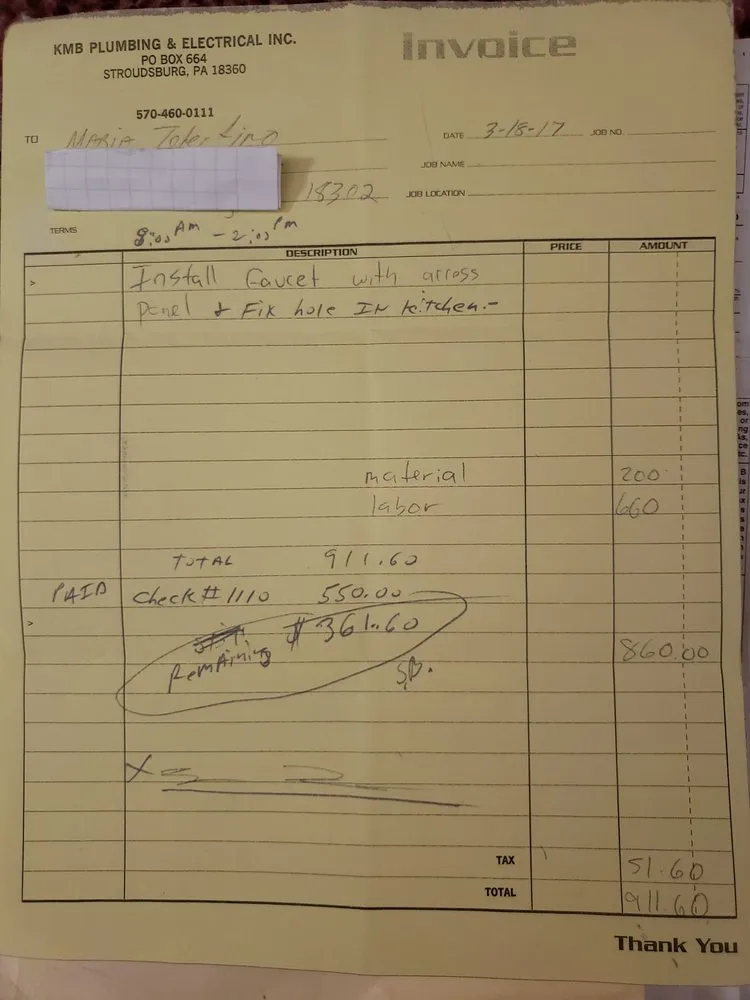 KMB PLUMBING & ELECTRICAL INC.
PO BOX 664
STROUDSBURG, PA 18360
570-460-0111
Invoice
TO MARIA
DATE 3-18-17 JOB NO.
JOB NAME
18302 JOB LOCATION
TERMS 8:00 AM - 2:00 PM
DESCRIPTION PRICE AMOUNT
> Install Faucet with
panel & Fix hole IN kitchen.-
material 200
labor 660
TOTAL 911.60
PAID check # 1110 550.00
> Remaining $361.60
860.00
SB.
X
TAX 51.60
TOTAL 911.60
Thank You